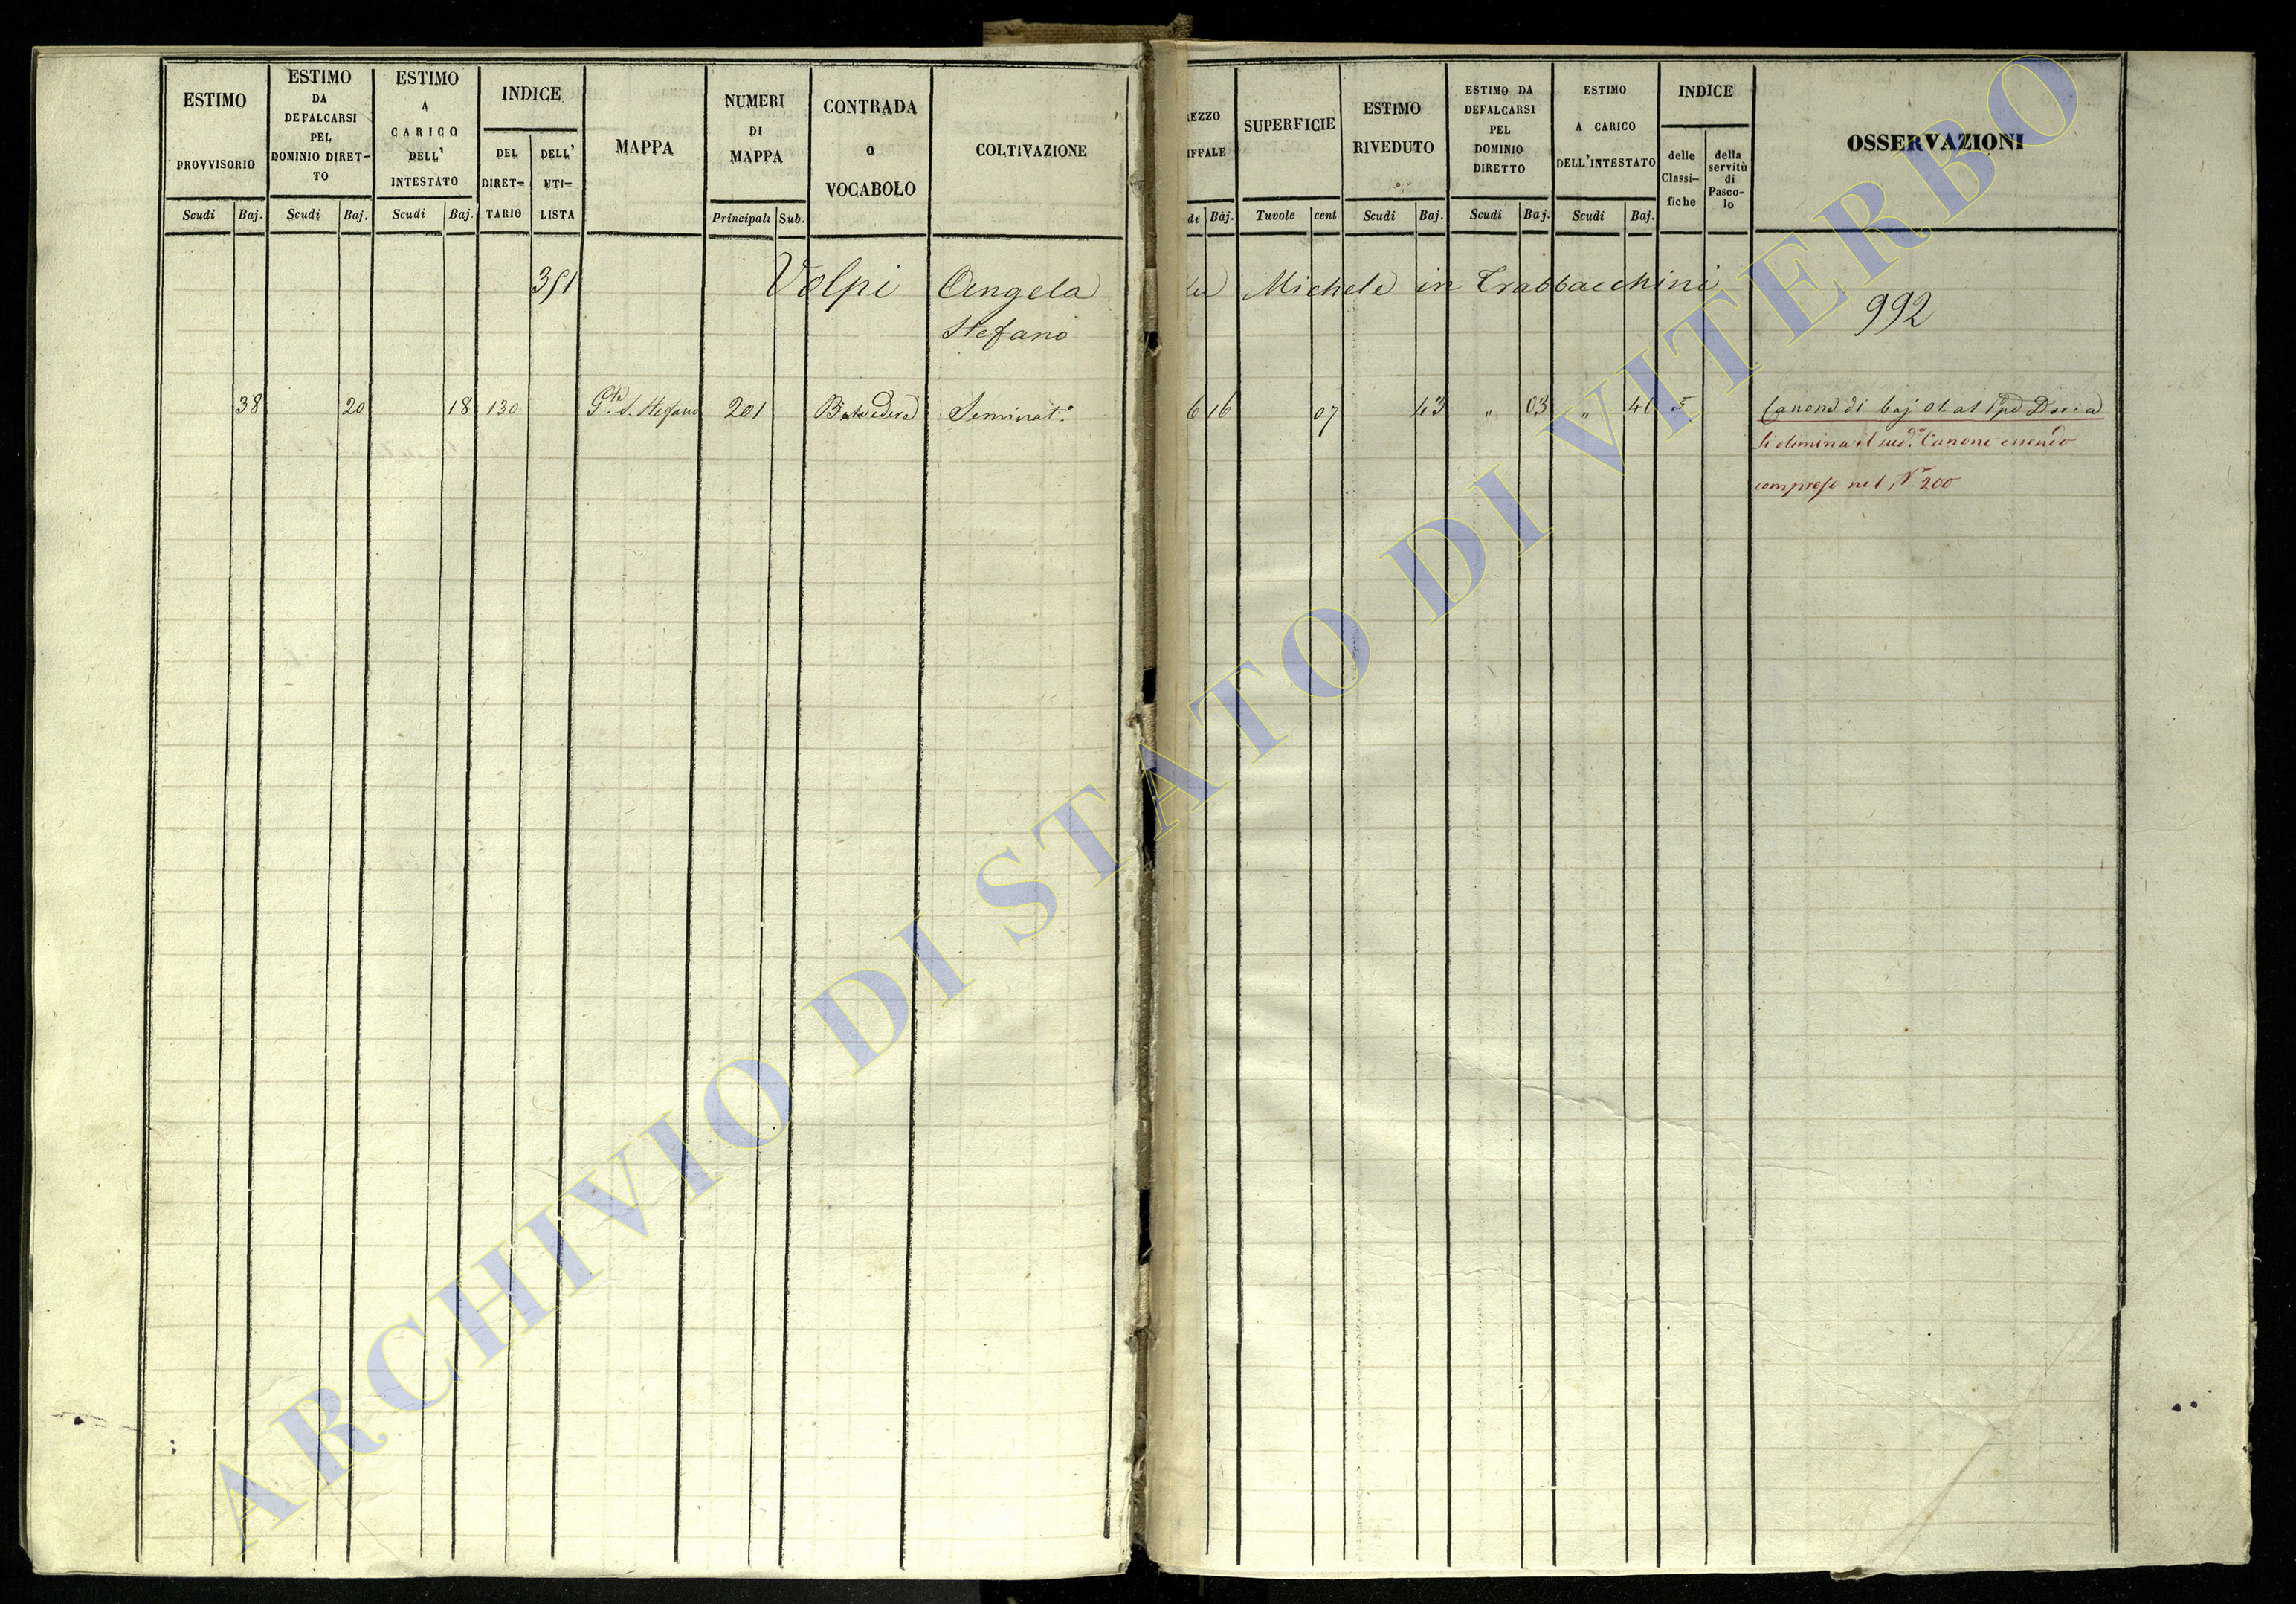 ESTIMO
PROVVISORIO
Scudi Baj.
ESTIMO
DA
DEFALCARSI
PEL
DOMINIO DIRET-
TO
Scudi Baj.
ESTIMO
A
CARICO
DELL'
INTESTATO
Scudi Baj.
INDICE
DEL
DIRET-
TARIO
DELL'
UTI-
LISTA
MAPPA
NUMERI
DI
MAPPA
Principali Sub.
CONTRADA
o
VOCABOLO
COLTIVAZIONE
EZZO
IFFALE
di Baj.
SUPERFICIE
Tavole cent
ESTIMO
RIVEDUTO
Scudi Baj.
ESTIMO DA
DEFALCARSI
PEL
DOMINIO
DIRETTO
Scudi Baj.
ESTIMO
A CARICO
DELL'INTESTATO
Scudi Baj.
INDICE
delle
Classi-
fiche
della
servitù
di
Pasco-
lo
OSSERVAZIONI
351 Volpi Angela Michele in Trabbacchini
Stefano
992
38 20 18 130 P.te S. Stefano 201 Belvedere Seminat.o 6 16 07 43 " 03 " 40 5 Canone di baj 01. al Ppe Doria
Si elimina il sud.o Canone essendo
compreso nel N 200
ARCHIVIO DI STATO DI VITERBO